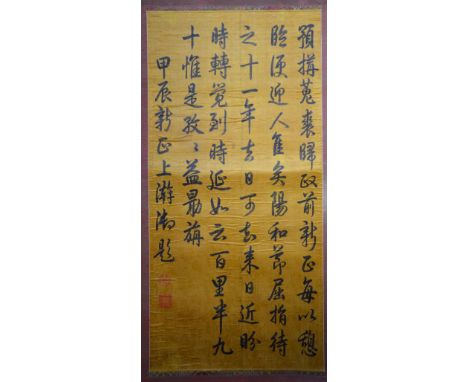 預搆菟裘歸政前新正每以憩
臨便迎人佳矣陽和節屈指待
之十一年去日可知来日近盼
時轉覺到時延如云百里半九
十惟是孜〻益勗旃
甲辰新正上澣御題